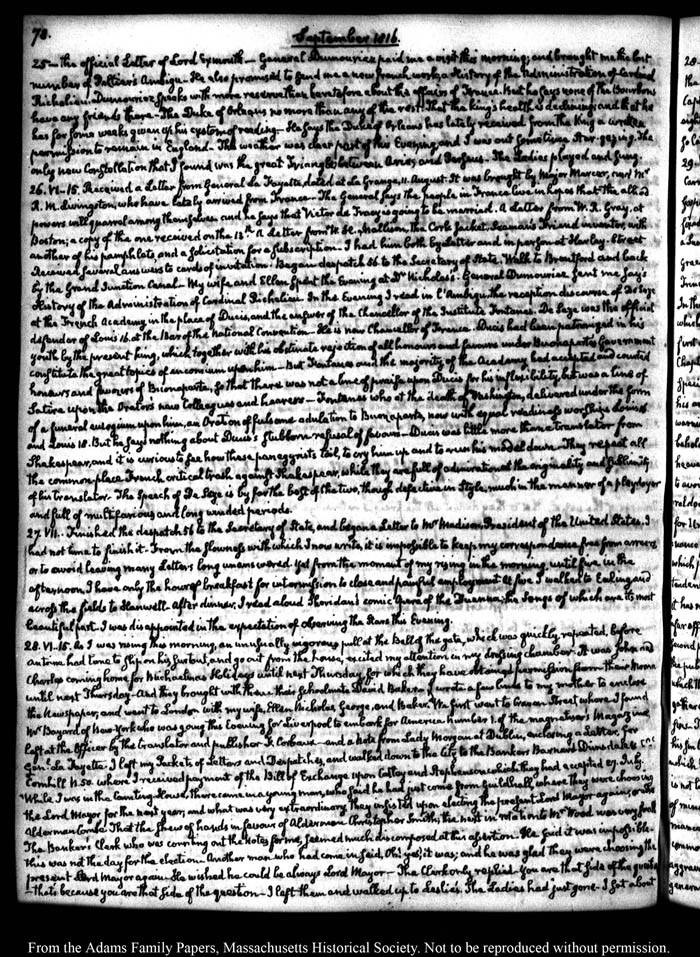 78.
September 1816.
25 — the official Letter of Lord Exmouth — General Dumouriez paid me a visit this morning; and brought me the last
number of Peltier's Ambigu. He also promised to send me a new french work, a History of the Administration of Cardinal
Richelieu. Dumouriez speaks with more reserve than heretofore about the affairs of France. But he says none of the Bourbons
have any friends there — The Duke of Orleans no more than any of the rest. That the king's health is declining; and that he
has for some weeks given up his custom of reading. He says the Duke of Orleans has lately received from the King a written
permission to remain in England. The weather was clear part of this Evening, and I was out sometime Star-gazing. The
only new Constellation that I found was the great Triangle between Aries and Perseus. The Ladies played and sung.
26. VI-15. Received a Letter from General La Fayette, dated at La Grange, 11. August. It was brought by Major Mercer, and Mr
R. M. Livingston, who have lately arrived from France — The General says the people in France live in hopes that the allied
powers will quarrel among themselves and he says that Victor de Tracy is going to be married. A Letter from W. R. Gray, at
Boston; a copy of the one received on the 13th. A letter from W. H. Mallison, the Cork Jacket, Seaman's Friend inventor, with
another of his pamphlets, and a solicitation for a subscription. I had him both by letter and in person at Harley-Street
Received several answers to cards of invitation. Began despatch 56 to the Secretary of State. Walk to Brentford and back
by the Grand Junction Canal. My wife and Ellen spent the Evening at Dr Nicholas's. General Dumouriez sent me Jay's
History of the Administration of Cardinal Richelieu. In the Evening I read in l'Ambigu the reception discourse of De Seze
at the French Academy in the place of Ducis, and the answer of the Chancellor of the Institute Fontanes. De Seze was the official
defender of Louis 16. at the Bar of the National Convention. He is now Chancellor of France. Ducis had been patronized in his
youth by the present king, which together with his obstinate rejection of all honours and favours under Buonaparte's Government
constitute the great topics of encomium upon him — But Fontanes and the majority of the Academy had accepted and courted
honours and favours of Buonaparte, so that there was not a line of praise upon Ducis for his inflexibility, but was a line of
Satire upon the Orators new Colleagues and hearers — Fontanes who at the death of Washington, delivered under the form
of a funeral eulogium upon him, an Oration of fulsome adulation to Buonaparte, now with equal readiness worships Louis 16
and Louis 18. But he says nothing about Ducis's stubborn refusal of favours — Ducis was little more than a translator from
Shakespear, and it is curious to see how these panegyrists toil, to cry him up and to run his model down. They repeat all
the common place French critical trash against Shakespear, while they are full of admiration at the originality and sublimity
of his translator. The Speech of De Seze is by far the best of the two, though defective in Style, much in the manner of a playdoyer
and full of multifarious and long winded periods.
27. VII. Finished the despatch 56 to the Secretary of State, and began a Letter to Mr Madison, President of the United States. I
had not time to finish it. From the slowness with which I now write, it is impossible to keep my correspondence free from arrears
or to avoid leaving many Letters long unanswered. Yet from the moment of my rising in the morning, until five in the
afternoon, I have only the hour of breakfast for intermission to close and painful employment. At five I walked to Ealing and
across the fields to Hanwell. After dinner, I read aloud Sheridan's comic Opera of the Duenna; the Songs of which are its most
beautiful part. I was disappointed in the expectation of observing the Stars this Evening.
28. VI-15. As I was rising this morning, an unusually vigorous pull at the Bell of the gate, which was quickly repeated, before
Antoine had time to slip on his surtout, and go out from the house, excited my attention in my dressing chamber. It was John and
Charles coming home for Michaelmas Holidays until next Thursday, for which they have obtained permission from their Mama
until next Thursday — And they brought with them their Schoolmate David Baker. I wrote a few lines to my mother to enclose
the Newspaper; and went to London with my wife, Ellen Nicholas, George, and Baker. We first went to Craven Street where I found
Mr Bayard of New-York who was going this Evening for Liverpool to embark for America number 1. of the magnetiser's Magazine,
left at the Office by the translator and publisher F. Corbaux — and a Note from Lady Morgan at Dublin, enclosing a Letter, for
Genl. La Fayette. I left my Packets of Letters and Despatches, and walked down to the City to the Bankers Barnard Dimsdale & Co.
Cornhill N. 50. where I received payment of the Bill of Exchange upon Cottey and Stephenson which they had accepted 27. July.
While I was in the Counting-House, there came in a young man, who said he had just come from Guildhall, where they were choosing
the Lord Mayor for the next year, and what was very extraordinary they insisted upon electing the present Lord Mayor again, or else
Alderman Combe. That the shew of hands in favour of Alderman Christopher Smith, the next in rotation to Mr Wood was very small
The Banker's Clerk who was counting out the Notes for me, seemed much discomposed at this assertion. He said it was impossible.
this was not the day for the election. Another man who had come in said, Oh! yes, it was; and he was glad they were choosing the
present Lord Mayor again. He wished he could be always Lord Mayor — The Clerk only replied you are that side of the question
— that's because you are that side of the question — I left them and walked up to Leslie's. The Ladies had just gone. I sat about
From the Adams Family Papers, Massachusetts Historical Society. Not to be reproduced without permission.